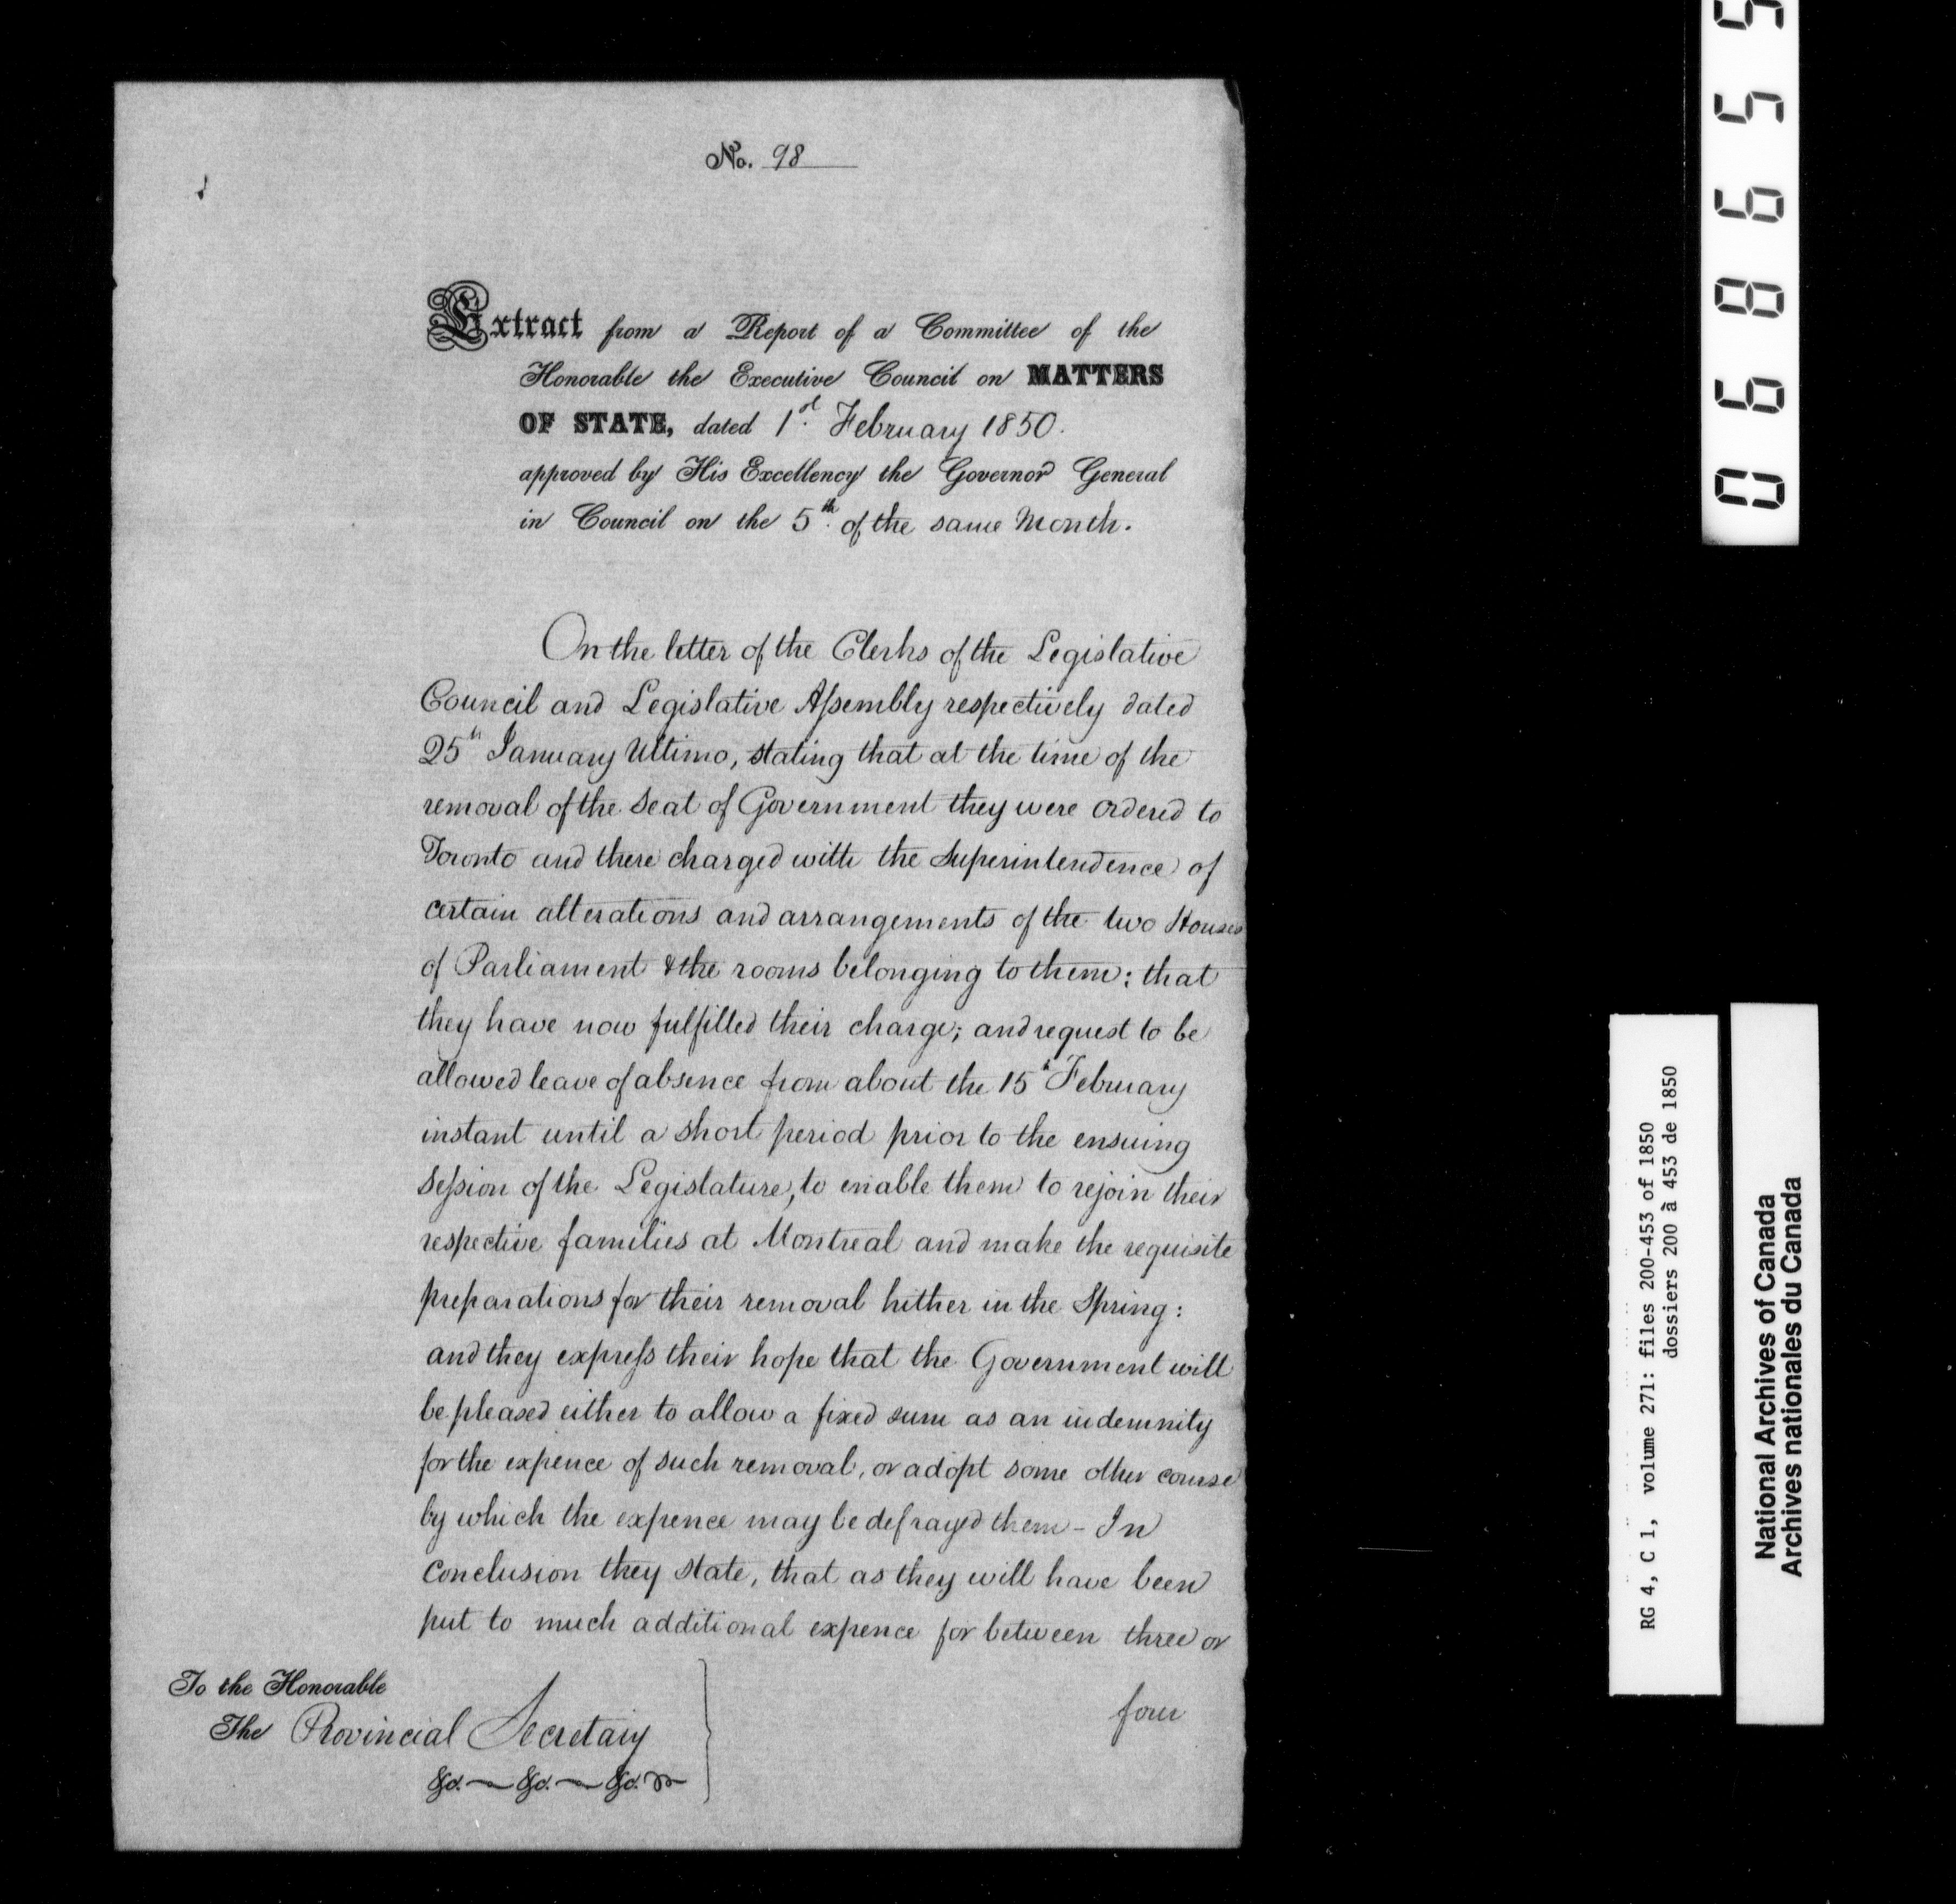 No. 98
Extract from a Report of a Committee of the
Honorable the Executive Council on MATTERS
OF STATE, dated 1st February 1850.
approved by His Excellency the Governor General
in Council on the 5th of the same Month.
On the letter of the Clerks of the Legislative
Council and Legislative Assembly respectively dated
25th January Ultimo, stating that at the time of the
removal of the Seat of Government they were ordered to
Toronto and there charged with the Superintendence of
certain alterations and arrangements of the two Houses
of Parliament & the rooms belonging to them: that
they have now fulfilled their charge; and request to be
allowed leave of absence from about the 15th February
instant until a short period prior to the ensuing
Session of the Legislature, to enable them to rejoin their
respective families at Montreal and make the requisite
preparations for their removal hither in the Spring:
and they express their hope that the Government will
be pleased either to allow a fixed sum as an indemnity
for the expence of such removal, or adopt some other course
by which the expence may be defrayed them - In
conclusion they state, that as they will have been
put to much additional expence for between three or
four
To the Honorable
The Provincial Secretary
&c. &c. &c.
068655
RG 4, C 1, volume 271: files 200-453 of 1850
dossiers 200 à 453 de 1850
National Archives of Canada
Archives nationales du Canada